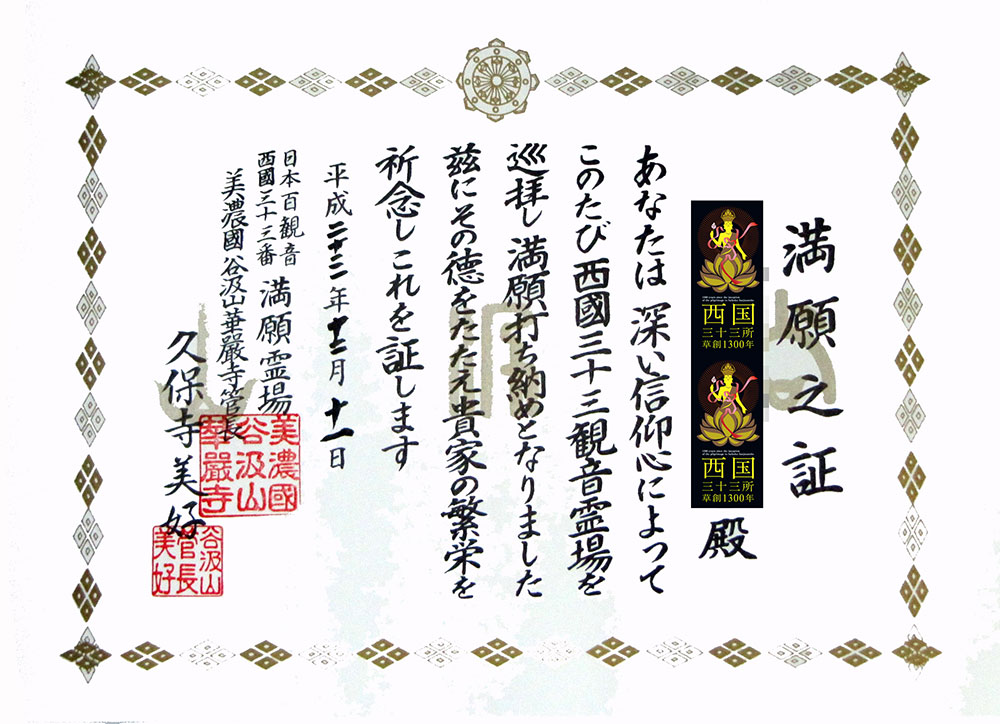 満願之証
西国
三十三所
草創1300年
西国
三十三所
草創1300年
殿
あなたは深い信仰心によって
このたび西國三十三観音霊場を
巡拝し満願打ち納めとなりました
茲にその徳をたたえ貴家の繁栄を
祈念しこれを証します
平成二十二年十二月十一日
日本百観音
西國三十三番
満願霊場
美濃國谷汲山華嚴寺管長
久保寺美好
美濃國
谷汲山
華嚴寺
谷汲山
管長
美好